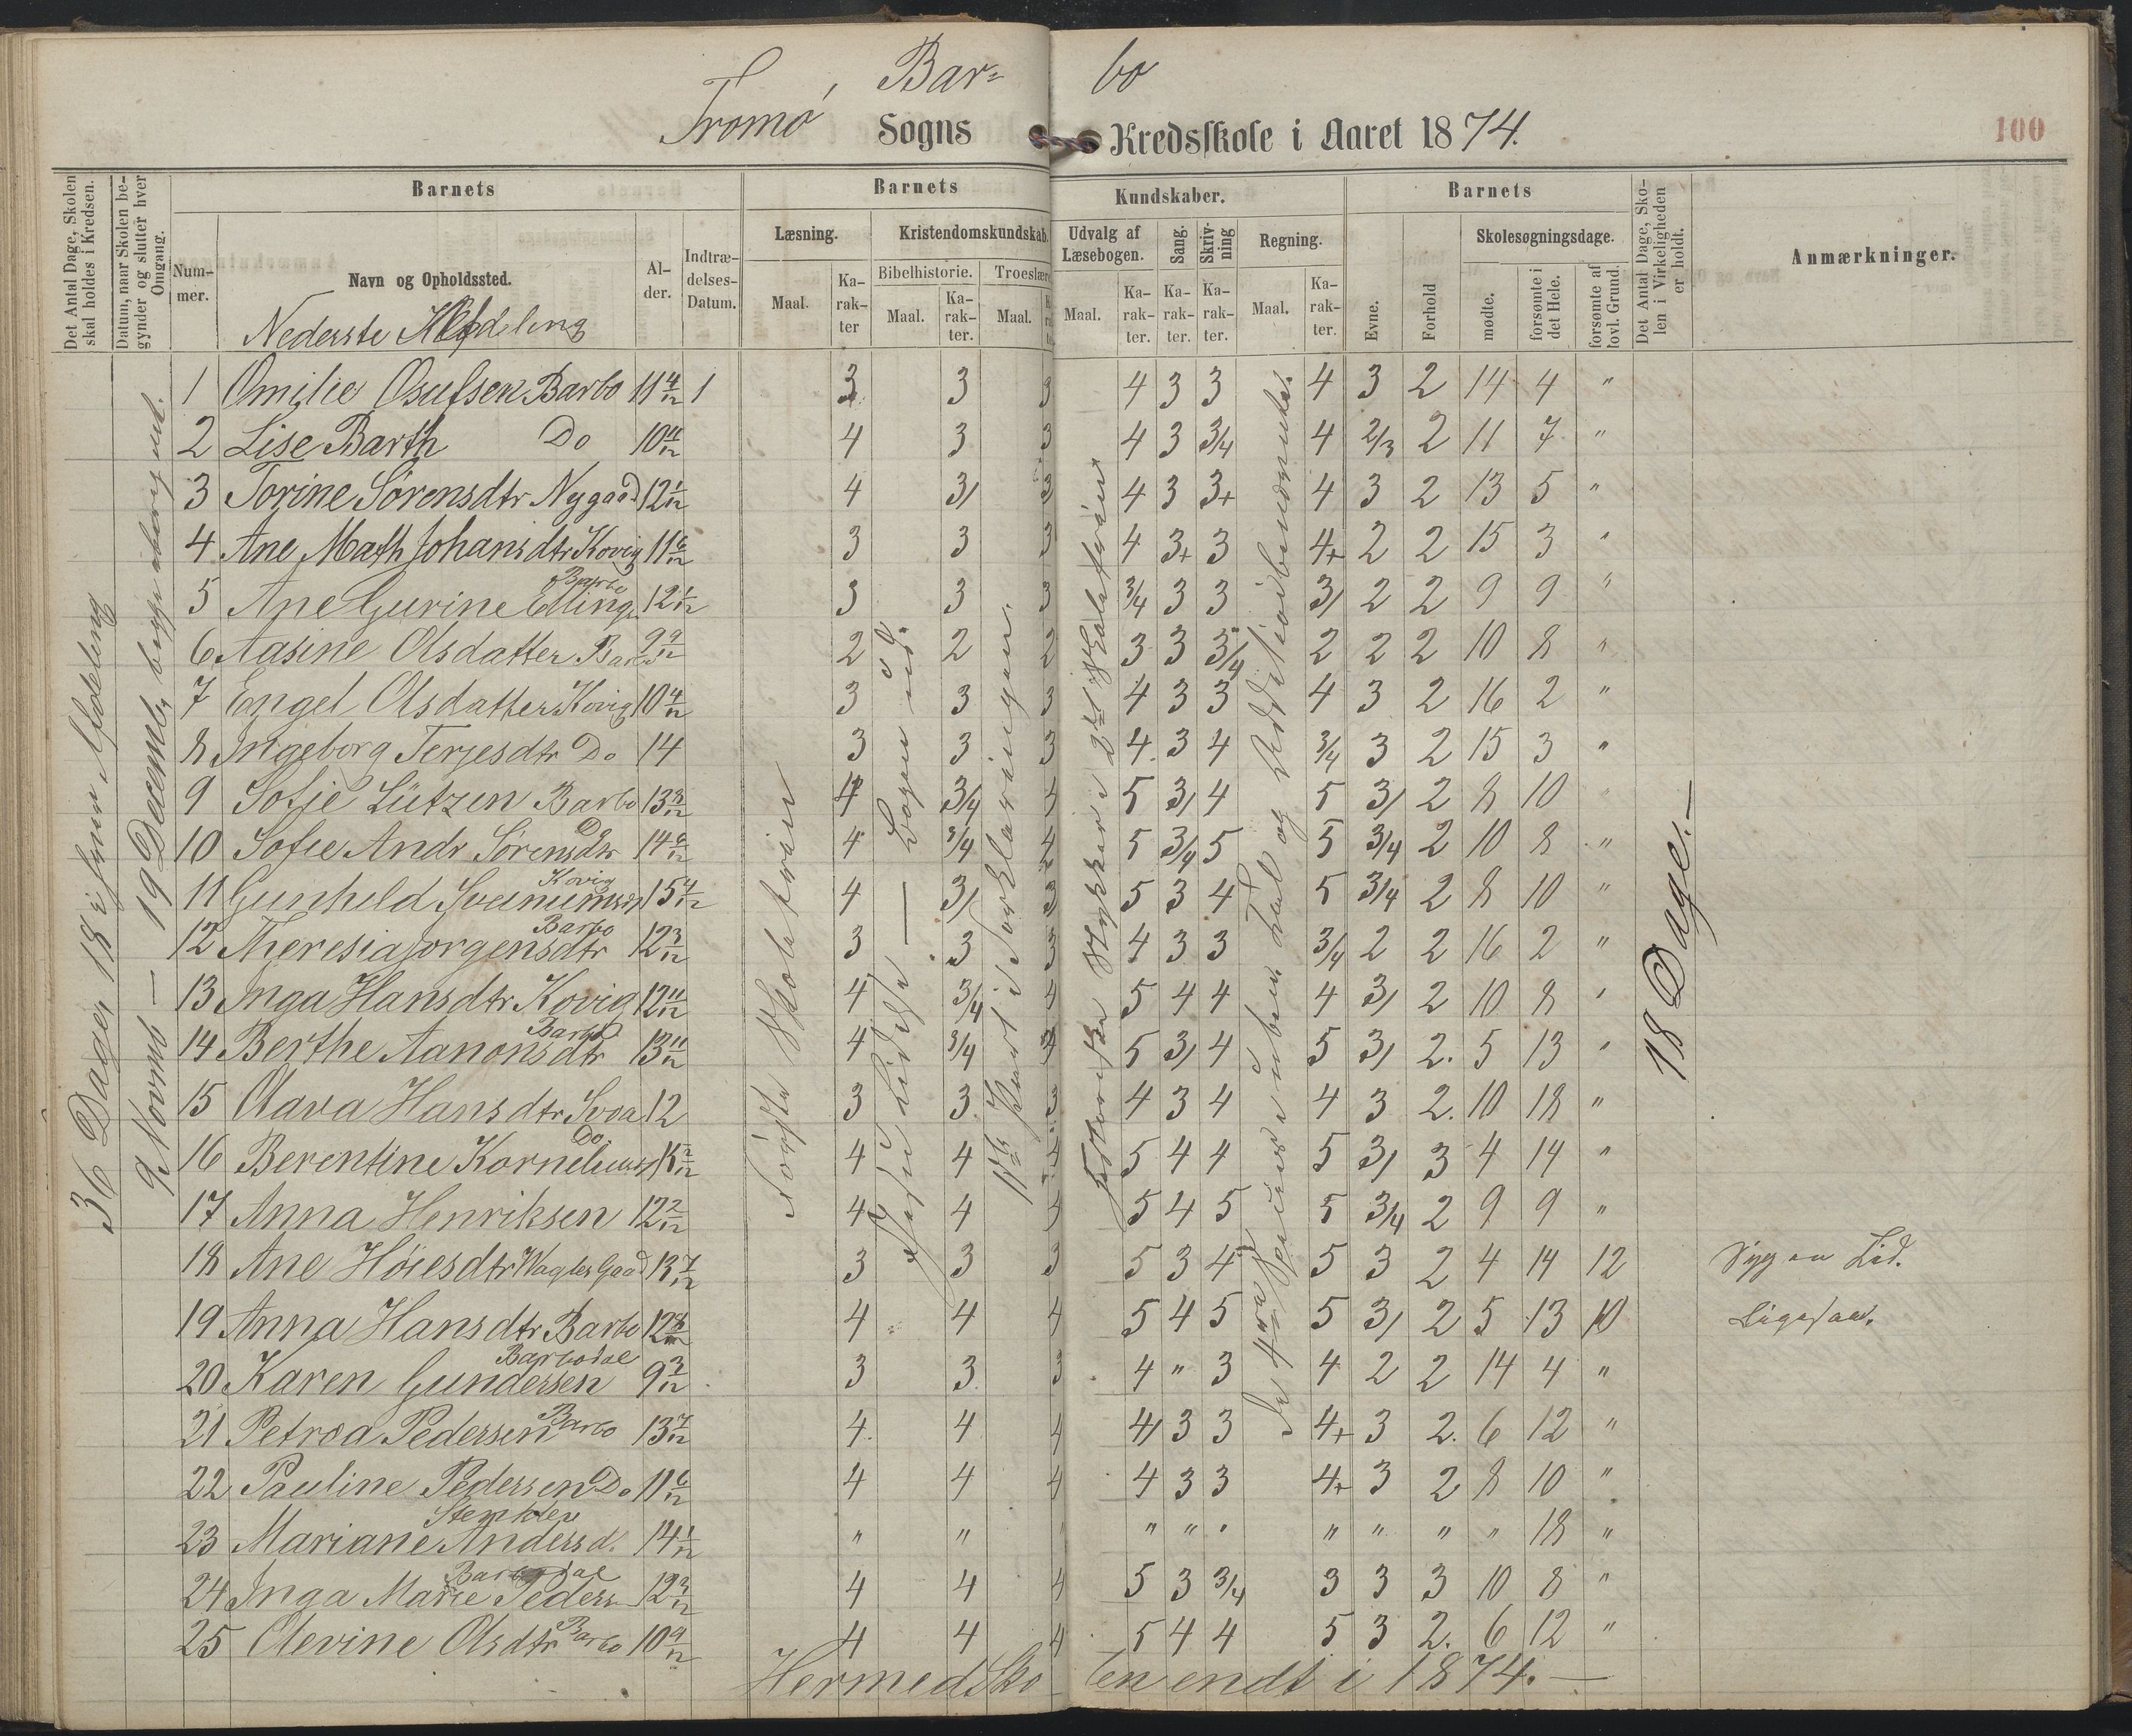 Tromø, Bar= bo
Sogns Kredsskole i Aaret 1874.
100
Det Antal Dage, Skolen skal holdes i Kredsen.
Datum, naar Skolen begynder og slutter hver Omgang.
Barnets
Nummer.
Navn og Opholdssted.
Nederste Afdeling
Alder.
Indtrædelses-Datum.
Barnets Kundskaber.
Læsning.
Maal.
Karakter
Kristendomskundskab.
Bibelhistorie.
Maal.
Karakter.
Troeslære
Maal.
Udvalg af Læsebogen.
Maal.
Karakter.
Sang.
Karakter.
Skrivning
Karakter.
Regning.
Maal.
Karakter.
Barnets
Evne.
Forhold
Skolesøgningsdage.
mødte.
forsømte i det Hele.
forsømte af lovl. Grund.
Det Antal Dage, Skolen i Virkeligheden er holdt.
Anmærkninger.
36 Dage, 18 i hver Afdeling
9 Novemb – 19 Decemb, begge iberegnet.
18 Dage. –
1 Omilie Osufsen Barbo 11 4/12 1 3 3 3 4 3 3 4 3 2 14 4 "
2 Lise Barth Do 10 11/12 4 3 3 4 3 3/4 4 2/3 2 11 7 "
3 Torine Sørensdtr Nygaad 12 1/12 4 3/ 3 4 3 3+ 4 3 2 13 5 "
4 Ane Math Johansdtr Kovig 11 6/12 3 3 3 4 3+ 3 4+ 2 2 15 3 "
5 Ane Gurine Elling Barbo 12 1/12 3 3 3 3/4 3 3 3/ 2 2 9 9 "
6 Aasine Olsdatter Barbo 9 9/12 2 2 2 3 3 3/4 2 2 2 10 8 "
7 Engel Olsdatter Kovig 10 4/12 3 3 3 4 3 3 4 3 2 16 2 "
8 Ingeborg Terjesdtr Do 14 3 3 3 4 3 4 3/4 3 2 15 3 "
9 Sofie Lützen Barbo 13 3/12 4 3/4 4 5 3/ 4 5 3/ 2 8 10
10 Sofie Andr Sørensdtr Do 14 9/12 4 3/4 4 5 3/4 5 5 3/4 2 10 8 "
11 Gunhild Kovig 15 4/12 4 3/ 3 5 3 4 5 3/4 2 8 10 "
12 Theresia Jorgensdtr Barbo 12 3/12 3 3 3 4 3 3 3/4 2 2 16 2 "
13 Inga Hansdtr Kovig 12 11/12 4 3/4 4 5 4 4 4 3/ 2 10 8 "
14 Berthe Aanonsdtr Barbo 13 11/12 4 3/4 4 5 3/ 4 5 3/ 2. 5 13 "
15 Olava Hansdtr Svoa 12 3 3 3 4 3 4 4 3 2. 10 18 "
16 Berentine Do 4 4 4 5 4 4 5 3/ 3 4 14 "
17 Anna Henriksen 12 2/12 4 4 4 5 4 5 5 3/4 2 9 9 "
18 Ane Høiesdtr Vagles Gaad 13 7/12 3 3 3 5 3 4 5 3 2 4 14 12 Syg en Tid.
19 Anna Hansdtr Barbo 4 4 4 5 4 5 5 3/ 2 5 13 10 Ligesaa.
20 Karen Gundersen Barbodal 9 3/12 3 3 3 4 " 3 4 2 2 14 4 "
21 Petrea Pedersen Barbo 13 7/12 4 4 4 4/ 3 3 4+ 3 2. 6 12 "
22 Pauline Pedersen Do 11 6/12 4 4 4 4 3 3 4+ 3 2 8 10 "
23 Mariane Andersd. 14 1/12 " " " " " " " " " " 18 "
24 Inga Marie Peders Barbodal 4 4 4 5 3 3/4 3 3 3 10 8 "
25 Olevine Olsdtr Barbo 10 9/12 4 4 4 5 4 4 5 3 2. 6 12 "
Hermed Sko len endt i 1874. –